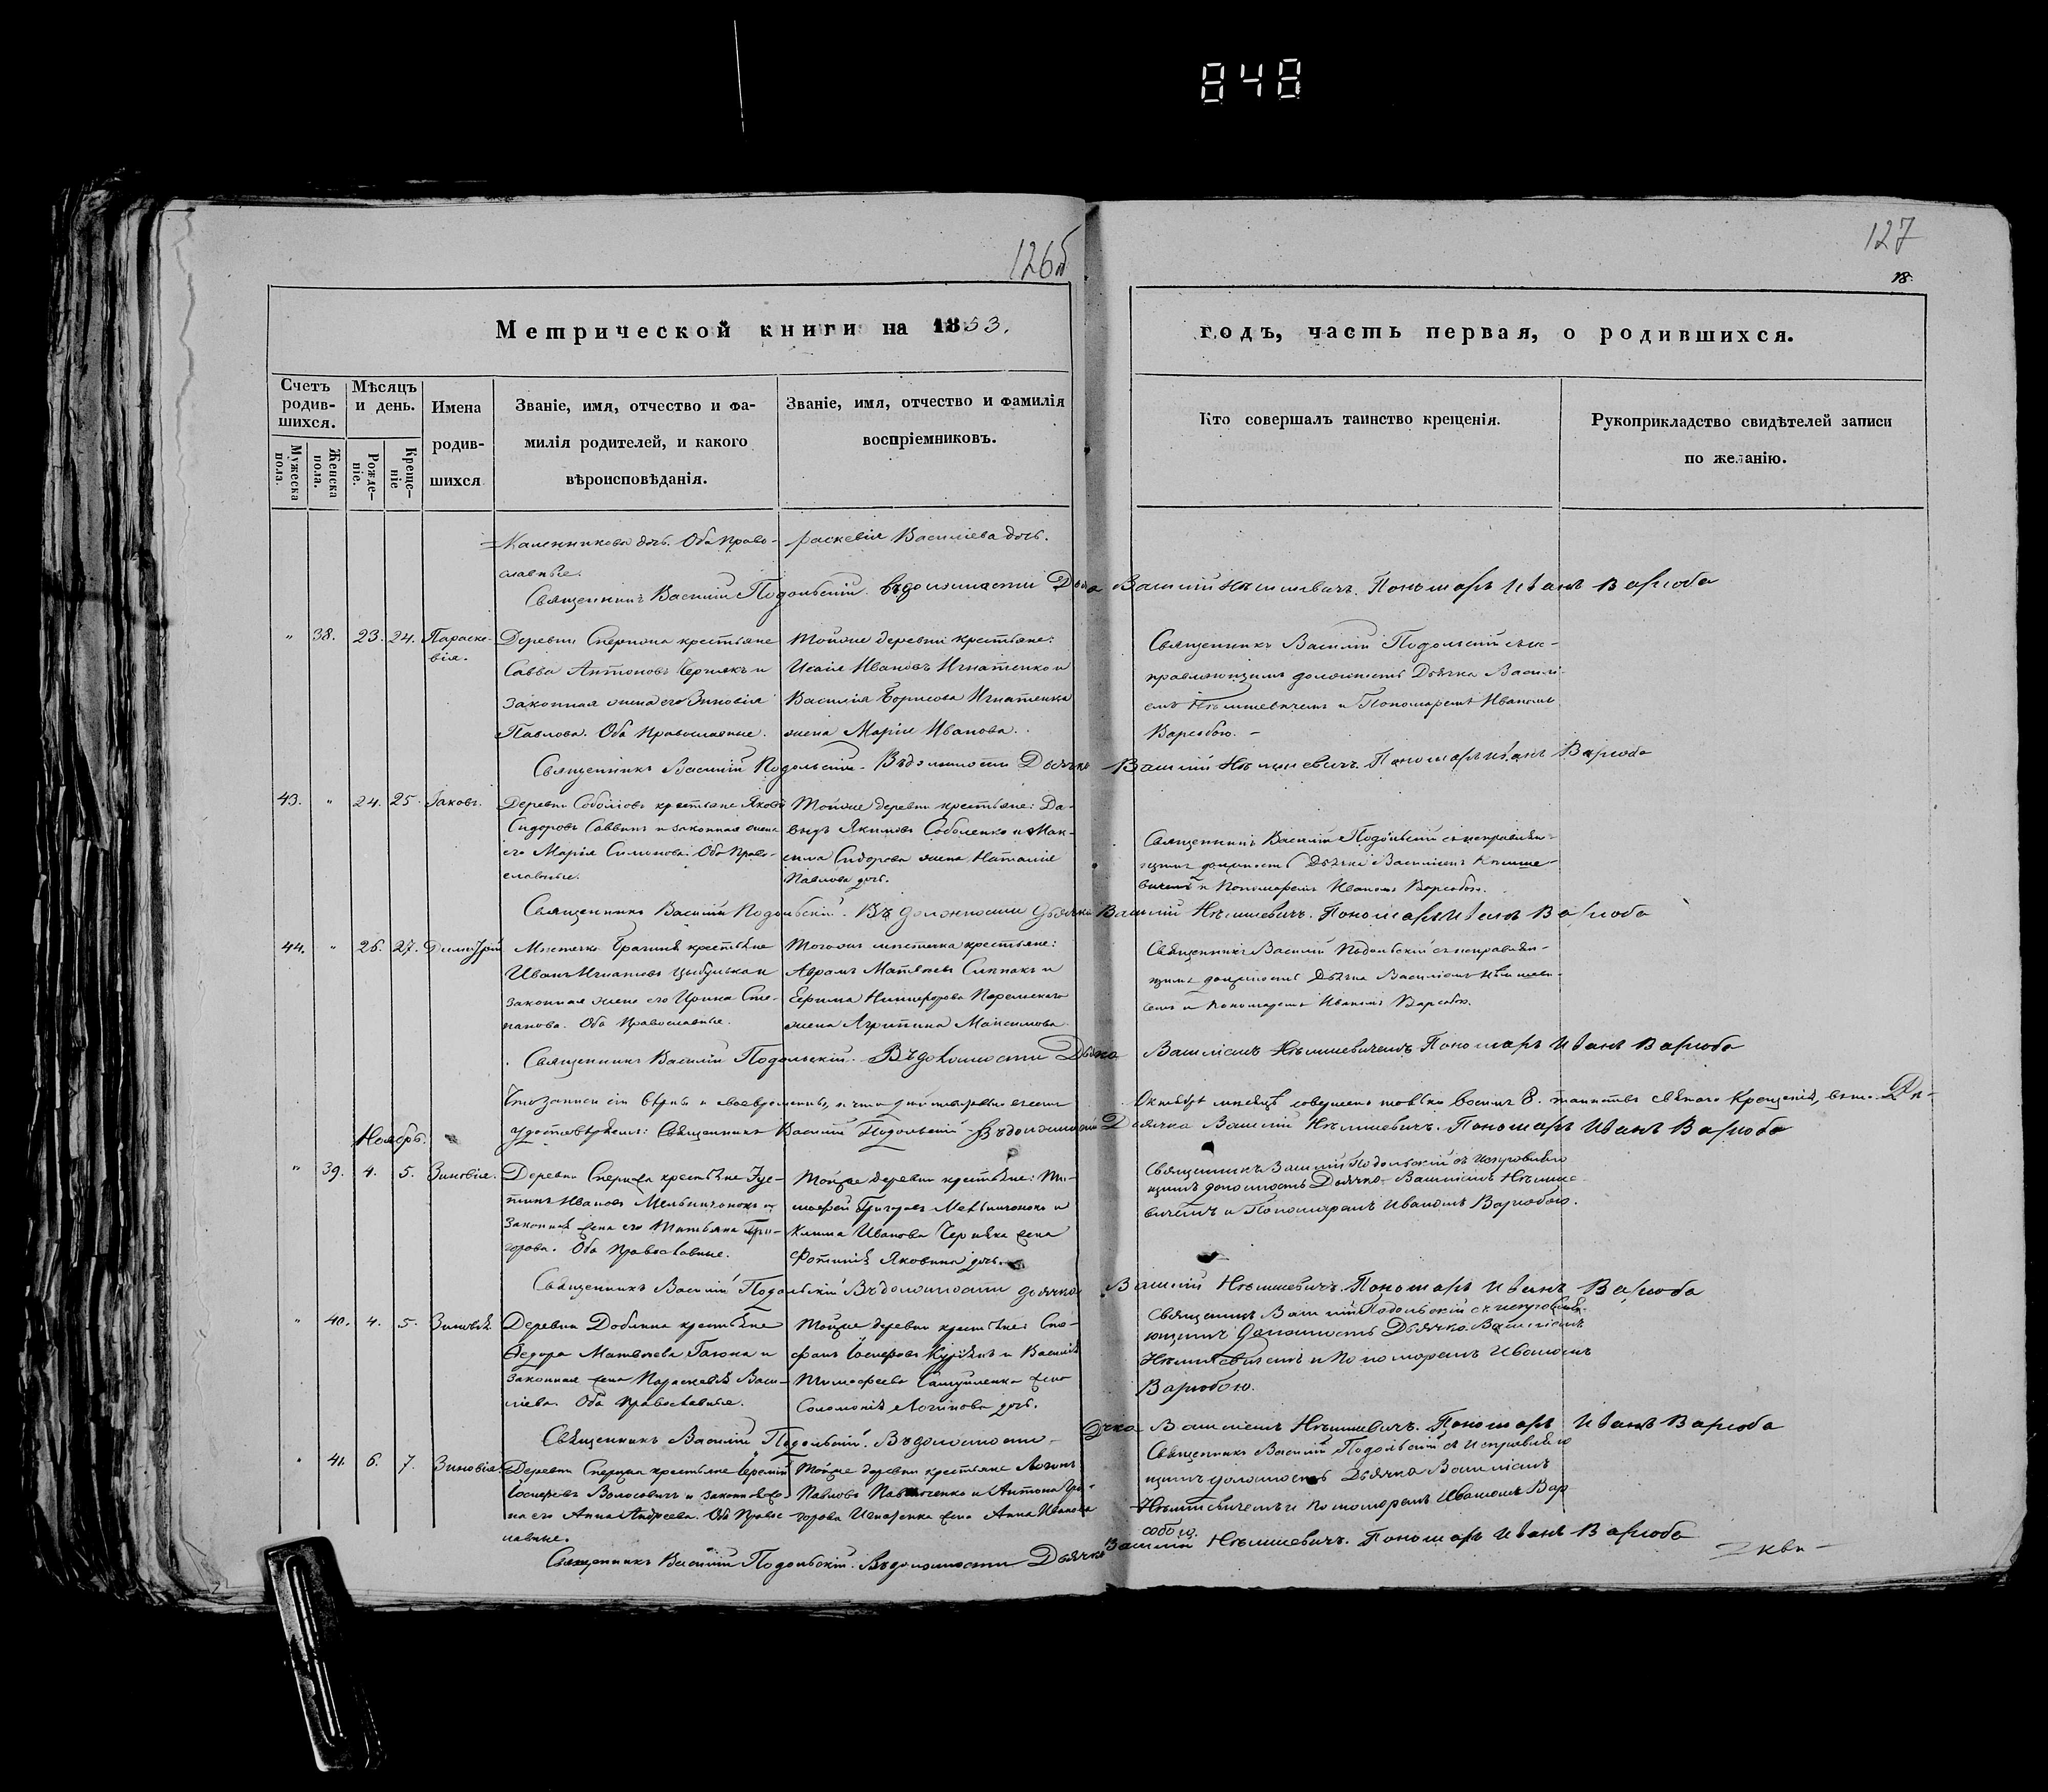 848
126б
127
18.
Метрической книги на 1853.
годъ, часть первая, о родившихся.
Счетъ родив-шихся.
Мужеска пола.
Женска пола.
Мѣсяцъ и день.
Рожде-ніе.
Креще-ніе
Имена
родив-
шихся
Званіе, имя, отчество и фа-
милія родителей, и какого
вѣроисповѣданія.
Званіе, имя, отчество и фамилія
воспріемниковъ.
Кто совершалъ таинство крещенія.
Рукоприкладство свидѣтелей записи
по желанію.
Каленникова дочь. Оба Право-
славные.
раскевія Василіева дочь.
Священникъ Василій Подольскій. Въ должности Дьячка Василій Нѣмшевичъ. Пономарь Иванъ Варсоба
" 38. 23. 24. Параске-
вія.
Деревни Спернона крестьяне
Савва Антоновъ Чернякъ и
законная жена его Зиновія
Павлова. Оба Православные.
Тойже деревни крестьяне:
Исаія Ивановъ Игнатенко и
Василія Борисова Игнатенка
жена Марія Иванова.
Священникъ Василій Подольскій съ ис-
правляющимъ должность Дьячка Василі-
емъ Нѣмшевичемъ и Пономаремъ Иваномъ
Варсобою.
Священникъ Василій Подольскій. Въ должности Дьячка Василій Нѣмшевичъ. Пономарь Иванъ Варсоба
43. " 24. 25. Іаковъ.
Деревни Соболіовъ крестьяне Яковъ
Сидоровъ Саввинъ и законная жена
его Марія Симонова. Оба Право-
славные.
Тойже деревни крестьяне: Да-
видъ Якимовъ Соболенко и Мак-
сима Сидорова жена Наталія
Павлова дочь.
Священникъ Василій Подольскій съ исправляю-
щимъ должность Дьячка Василіемъ Нѣмше-
вичемъ и Пономаремъ Иваномъ Варсобою.
Священникъ Василій Подольскій. Въ должности Дьячка Василій Нѣмшевичъ. Пономарь Иванъ Варсоба
44. " 26. 27. Димитрій
Мѣстечка Брагинѣ крестьяне
Иванъ Игнатовъ Цыбулька и
законная жена его Ирина Сте-
панова. Оба Православные.
Тогожъ мѣстечка крестьяне:
Аврамъ Матвѣевъ Сиппакъ и
Ефима Никифорова
жена Агрипина Максимова
Священникъ Василій Подольскій съ исправляю-
щимъ должность Дьячка Василіемъ Нѣмшеви-
чемъ и Пономаремъ Иваномъ Варсобою.
Священникъ Василій Подольскій. Въ должности Дьячка Василіемъ Нѣмшевичемъ Пономарь Иванъ Варсоба
Что записи сіи вѣрны и своевременны, и что Октябрѣ мѣсяцѣ совершено только восемь 8. таинствъ святаго Крещенія, въ томъ
удостовѣряемъ: Священникъ Василій Подольскій. Въ должности Дьячка Василій Нѣмшевичъ. Пономарь Иванъ Варсоба
Ноябрь.
" 39. 4. 5. Зиновія.
Деревни Спернона крестьяне Іус-
тинъ Ивановъ Мельниченокъ и
законная жена его Татьяна Гри-
горова. Оба Православные.
Тойже деревни крестьяне: Ти-
мофей Григоровъ Мельниченокъ и
Клима Иванова Черняка жена
Фотинія Яковина дочь.
Священникъ Василій Подольскій съ исправляю-
щимъ должность Дьячка Василіемъ Нѣмше-
вичемъ и Пономаремъ Иваномъ Варсобою.
Священникъ Василій Подольскій Въ должности дьячка Василій Нѣмшевичъ. Пономарь Иванъ Варсоба
" 40. 4. 5. Зиновія.
Деревни Доблина крестьяне
Ѳедора Матвѣева Гаюка и
законная жена Параскевія Васи-
ліева. Оба Православные.
Тойже деревни крестьяне: Сте-
фанъ Іосифовъ и Василія
Тимофеева жена
Соломонія Логинова дочь.
Священникъ Василій Подольскій съ исправля-
ющимъ должность Дьячка Василіемъ
Нѣмшевичемъ и Пономаремъ Иваномъ
Варсобою.
Священникъ Василій Подольскій. Въ должности Дьячка Василіемъ Нѣмшевичъ. Пономарь Иванъ Варсоба
" 41. 6. 7. Зиновія.
Деревни Спернона крестьяне Іеремій
Іосифовъ Волосовичъ и законная же-
на его Анна Андреева. Оба Правос-
лавные.
Тойже деревни крестьяне Логинъ
Павловъ Павлюченко и Антона Гри-
горова Игнатенка жена Анна Иванова
Священникъ Василій Подольскій съ исправляю-
щимъ должность Дьячка Василіемъ
Нѣмшевичемъ и Пономаремъ Иваномъ Вар-
собою.
Священникъ Василій Подольскій. Въ должности Дьячка Василій Нѣмшевичъ. Пономарь Иванъ Варсоба